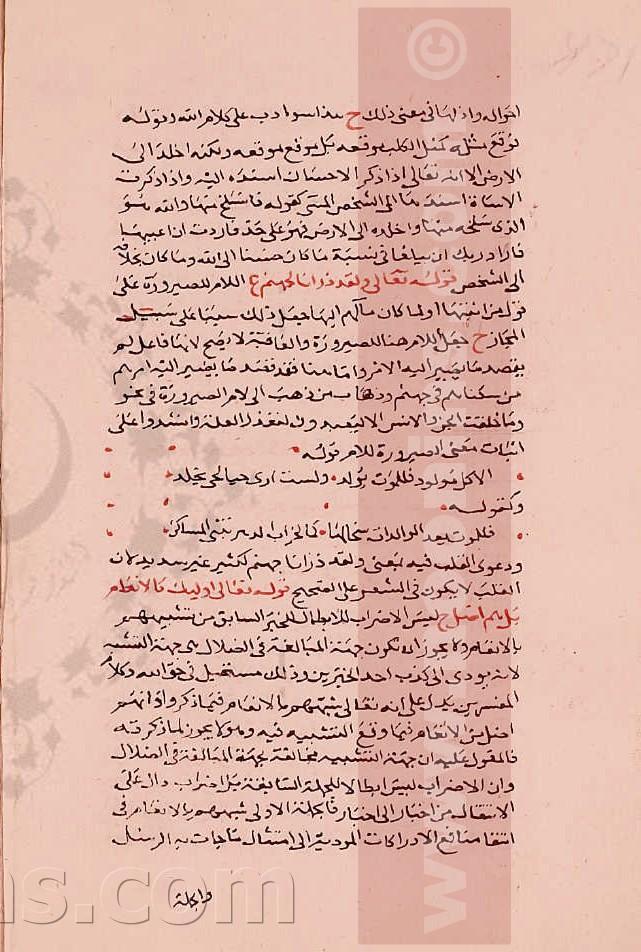 احواله واذلها فى معنى ذلك ح هذا سوادب على كلام الله وقوله
توقع مثله كمثل الكلب موقعه بل موقع موقعه ولكنه اخلد الى
الارض الا انه تعالى اذا ذكر الاحسان اسنده اليه واذا ذكرت
الاساة اسندها الى الشخص المسى كقوله فانسلخ منها والله هو
الذى سلخه منها واخلده الى الارض فهو على حد فاردت ان اعيبها
فاراد ربك ان يبلغا فى نسبة ما كان حسنا الى الله وما كان بخلافه
الى الشخص قوله تعالى ولقد ذرانا لجهنم ع اللام للصيرورة على
قول من اثبتها او لما كان مآلهم اليها جعل ذلك سببا على سبيل
المجاز ح جعل اللام هنا للصيرورة والعاقبة لا يصح لانها فاعل لم
يقصد ما يصير اليه الامر واما هنا فقد قصد ما يصير اليه امرهم
من سكناهم فى جهنم وذهاب من ذهب الى لام الصيرورة فى نحو
وما خلقت الجن والانس الا ليعبدون لتعذر العلة واستدوا على
اثبات معنى الصيرورة للام قوله
الا كل مولود فللموت يولد ولست ارى حيا لحى يخلد
وكقوله
فللموت تغذو الوالدات سخالها كما لخراب الدهر تبنى المساكن
ودعوى القلب فيه بمعنى ولقد ذرانا جهنم لكثير غير سديد لان
القلب لا يكون فى الشعر على الصحيح قوله تعالى اوليك كالانعام
بل هم اضل ح ليس الاضراب للابطال للخبر السابق من تشبيههم
بالانعام ولا يجوز ان تكون جهة المبالغة فى الضلال هى جهة التشبيه
لانه يودى الى كذب احد الخبرين وذلك مستحيل فى حق الله وكلام
المفسرين يدل على انه تعالى شبههم بالانعام فيما ذكر وانهم
اضل من الانعام فيما وقع التشبيه فيه وهو لا يجوز لما ذكرته
فالمعول عليه ان جهة التشبيه مخالفة لجهة المبالغة فى الضلال
وان الاضراب ليس ابطالا للجملة السابقة بل اضراب دال على
الانتقال من اخبار الى اخبار فالجملة الاولى شبههم بالانعام فى
انتفا منافع الادراكات المودية الى امتثال ما جات به الرسل
والجملة
ns.com
©
www.